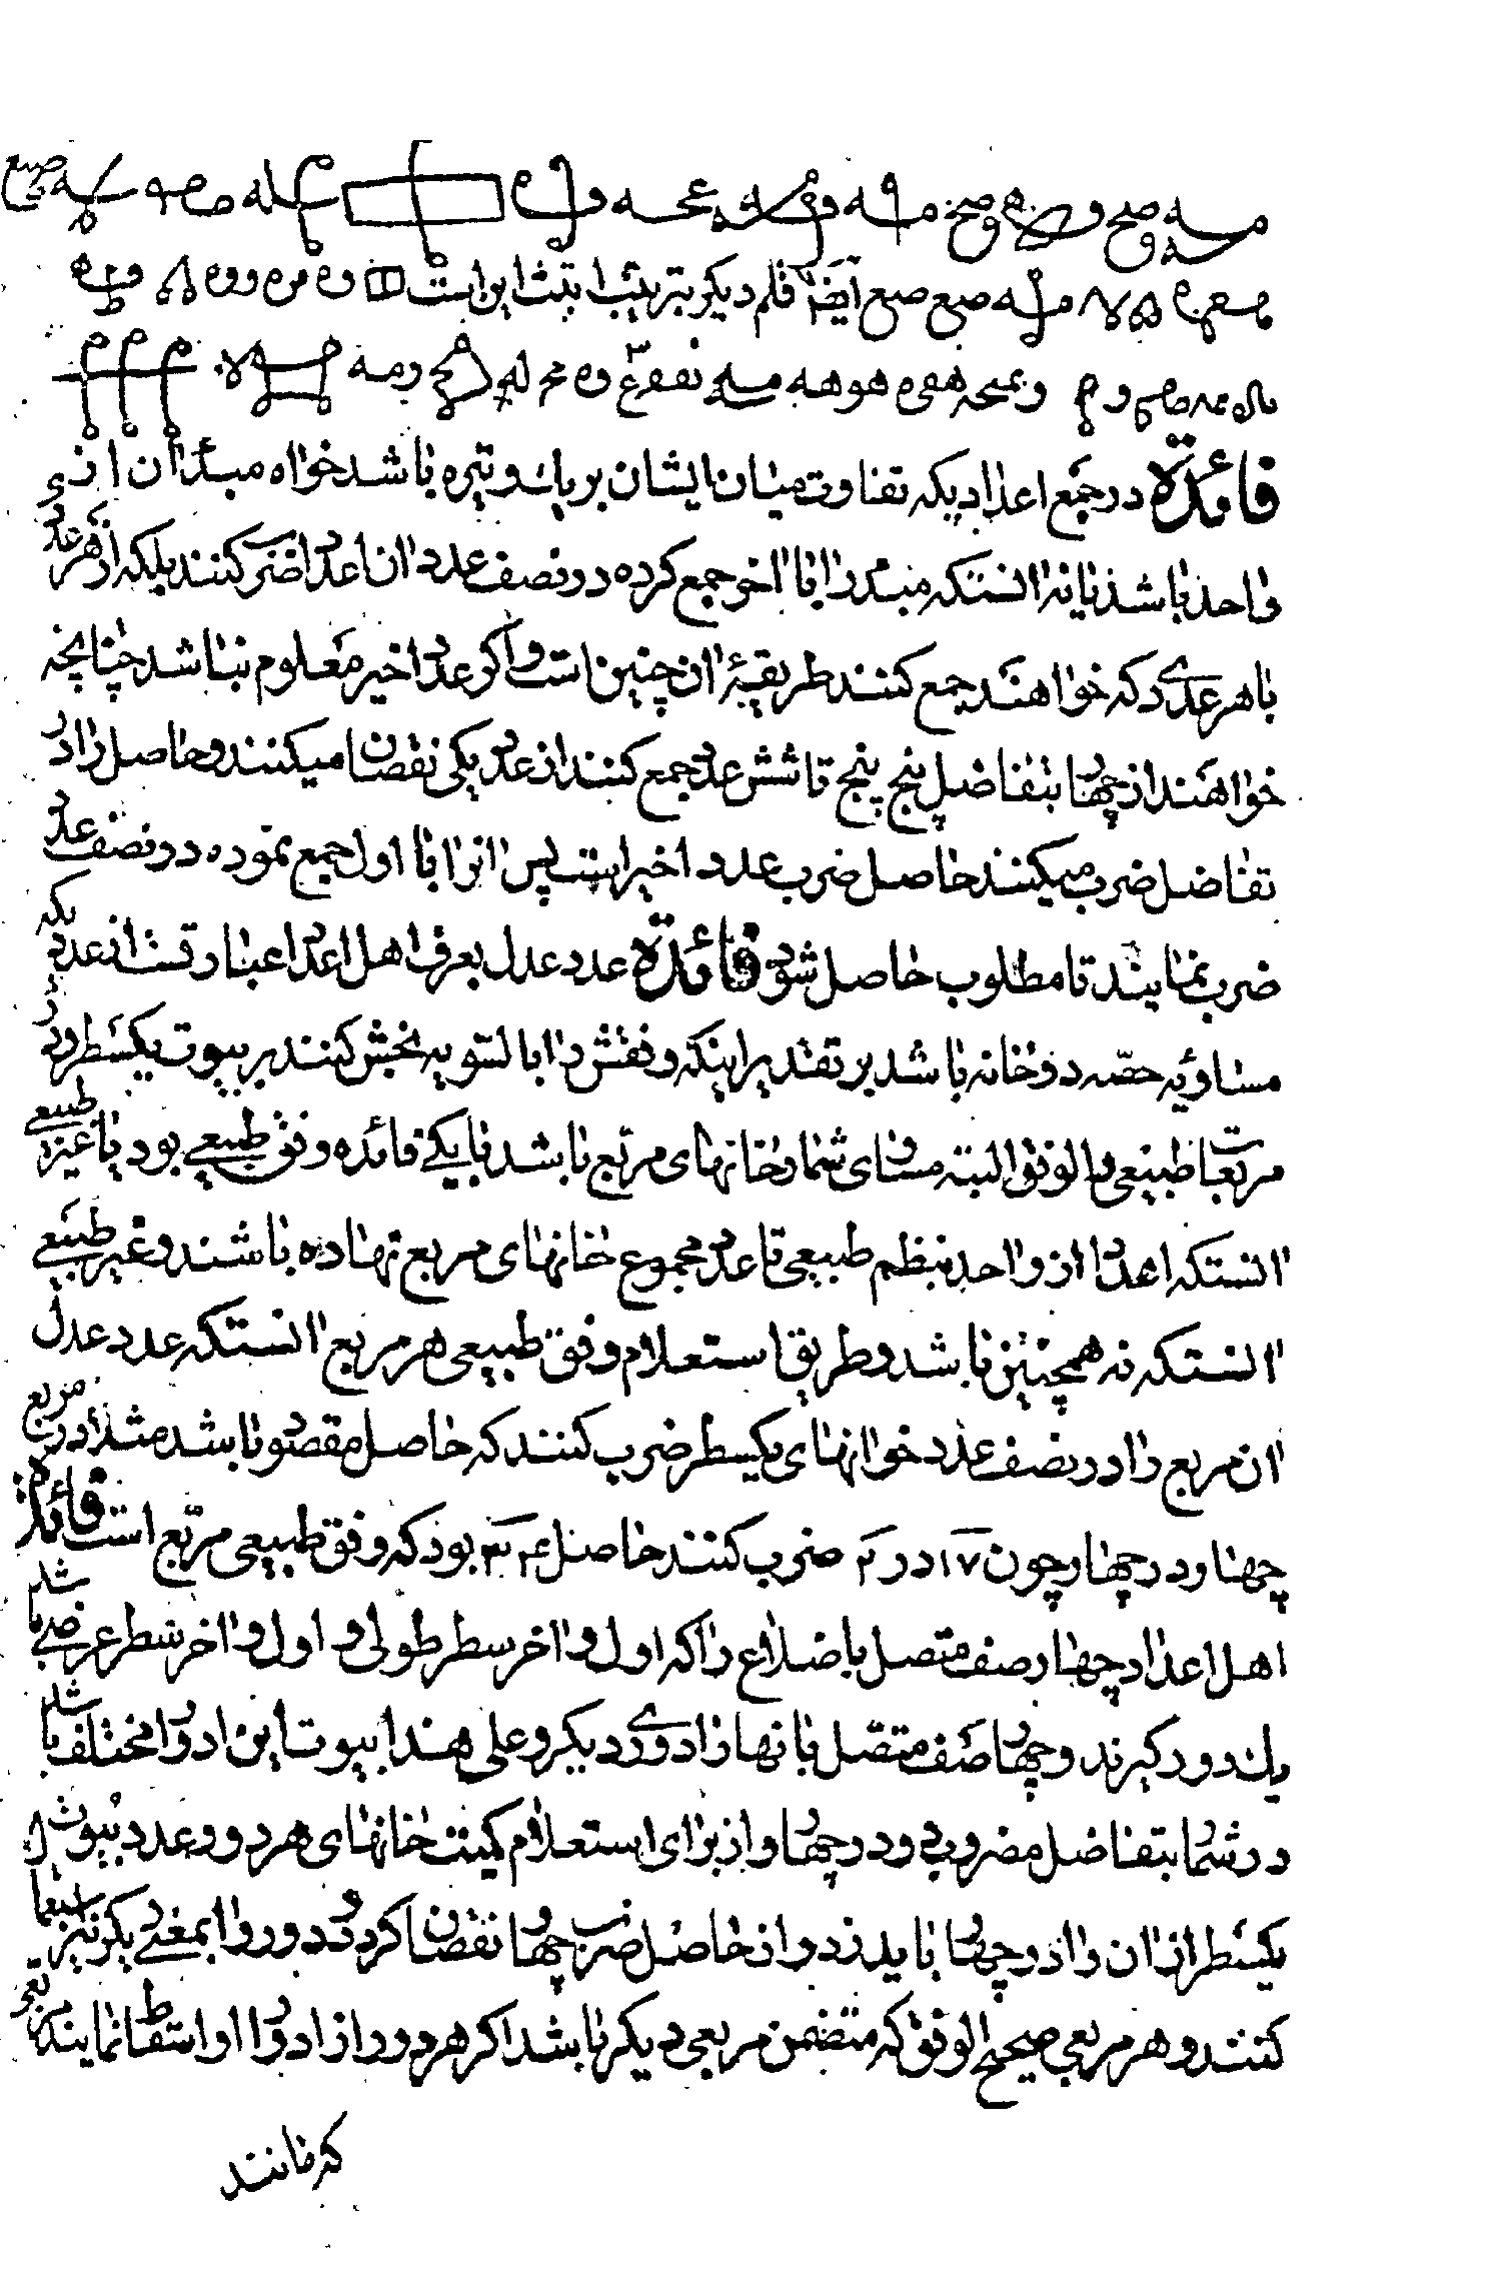 ایضا قلم دیکر بترتیب ابتث این است
فائدة در جمع اعدادیکه تفاوت میان ایشان بریك وتیره باشد خواه مبدأ آن از
واحد باشد یا نه آنستکه مبدء را با آخر جمع کرده در نصف عدد آن اعداد ضرب کنند بلکه از هر عددی
با هر عددی که خواهند جمع کنند طریقهٔ آن چنین است و اکر عدد اخیر معلوم نباشد چنانچه
خواهند از چهار بتفاضل پنج پنج تا شش عدد جمع کنند از عدد یکی نقصان میکنند و حاصل را در
تفاضل ضرب میکنند حاصل ضرب عدد اخیر است پس آنرا با اول جمع نموده در نصف عدد
ضرب نمایند تا مطلوب حاصل شود فائدة عدد عدل بعرف اهل اعداد عبارتست از عددیکه
مساویه حصّه دو خانه باشد بر تقدیر اینکه وفقش را بالتسویه بخش کنند بر بیوت یکسطر و در
مربعات طبیعی الوفق البته مساوی شمار خانهای مربّع باشد با یکی فائده وفق طبیعی بود یا غیره طبیعی
آنستکه اعداد از واحد بنظم طبیعی تا عدد مجموع خانهای مربع نهاده باشند و غیر طبیعی
آنستکه نه همچنین باشد و طریق استعلام وفق طبیعی هر مربع آنستکه عدد عدل
ان مربع را در نصف عدد خوانهای یکسطر ضرب کنند که حاصل مقصود باشد مثلا در مربع
چهار در چهار چون ۱۷ در ۲ ضرب کنند حاصل ۳۴ بود که وفق طبیعی مربّع است فائدة
اهل اعداد چهار صف متصل باضلاع را که اول و اخر سطر طولی و اول و اخر سطر عرضی باشد
یك دور کیرند و چهار صف متصل بانها را دوری دیکر و علی هذا بیوت این ادوار مختلف باشد
در شمار بتفاضل مضروب دو در چهار و از برای استعلام کمیت خانهای هر دور عدد بیوت
یکسطر از ان را در چهار باید زد و از حاصل ضرب چهار نقصان کرد و دور را بمعنی دیکر نیز
کنند و هر مربعی صحیح الوفق که متضمن مربعی دیکر باشد اکر هر دور از ادوار او اسقاط نمایند
که مانند